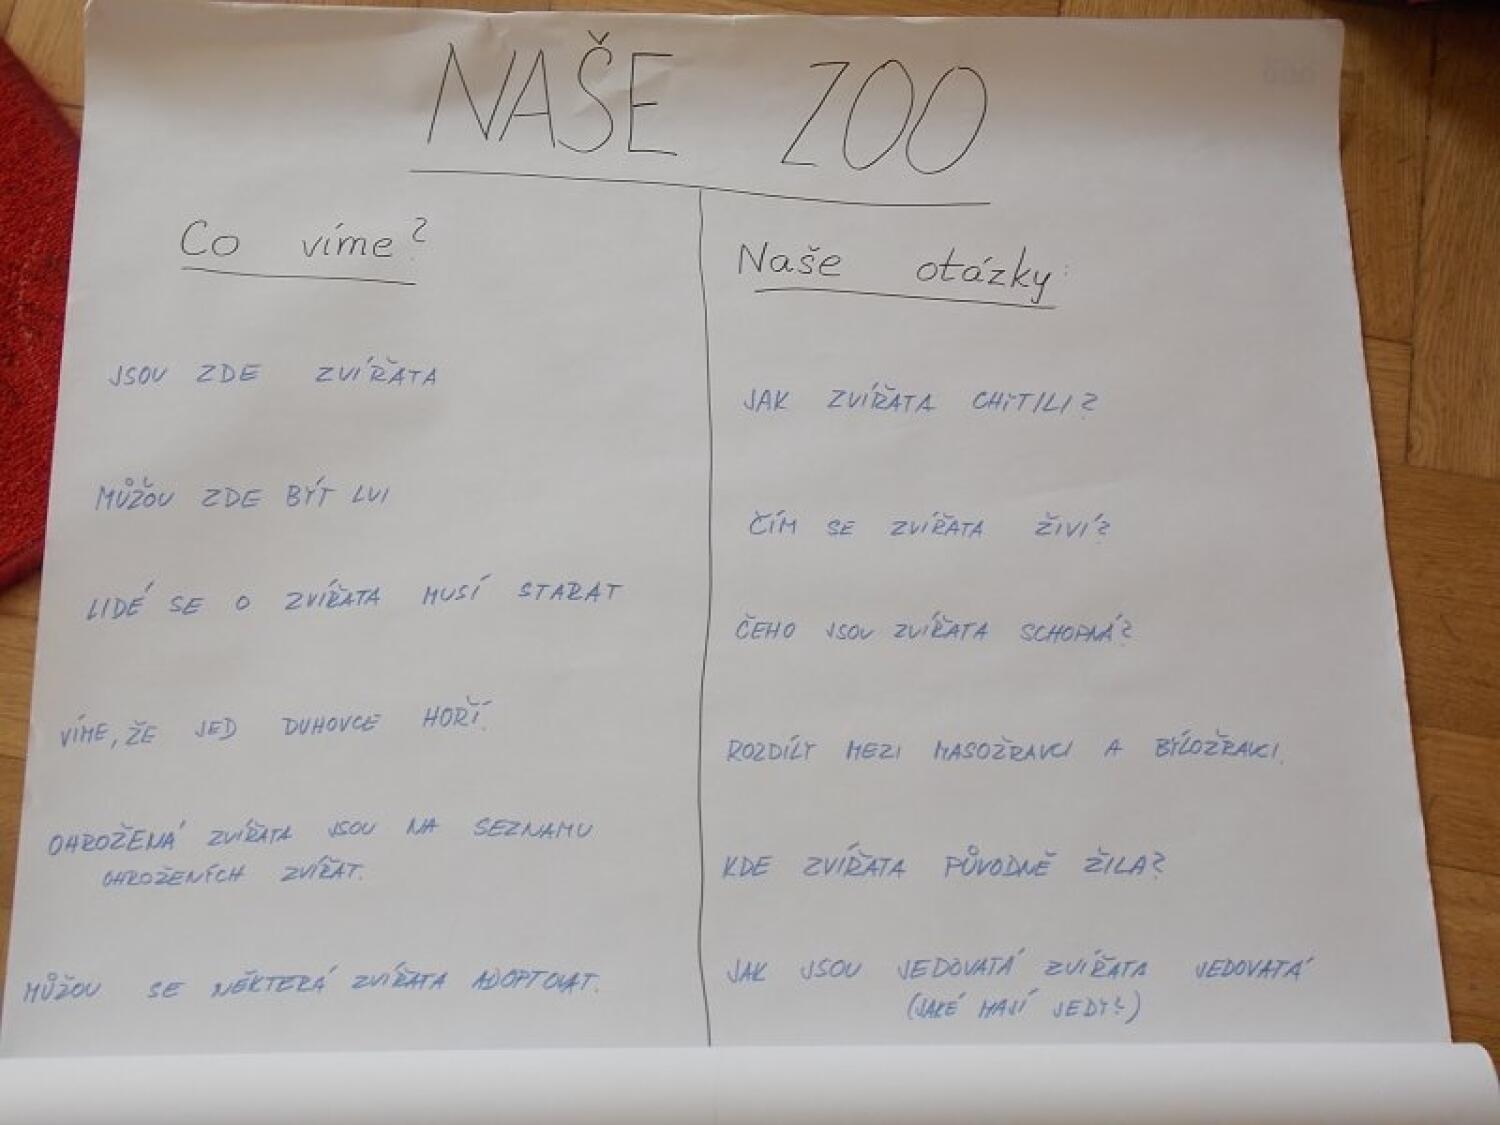 NAŠE ZOO
Co víme?
JSOU ZDE ZVÍŘATA
MŮŽOU ZDE BÝT LVI
LIDÉ SE O ZVÍŘATA MUSÍ STARAT
VÍME, ŽE JED DUHOVCE HOŘÍ.
OHROŽENÁ ZVÍŘATA JSOU NA SEZNAMU
OHROŽENÝCH ZVÍŘAT.
MŮŽOU SE NĚKTERÁ ZVÍŘATA ADOPTOVAT.
Naše otázky:
JAK ZVÍŘATA CHITILI?
ČÍM SE ZVÍŘATA ŽIVÍ?
ČEHO JSOU ZVÍŘATA SCHOPNÁ?
ROZDÍLY MEZI MASOŽRAVCI A BÝLOŽRAVCI.
KDE ZVÍŘATA PŮVODNĚ ŽILA?
JAK JSOU JEDOVATÁ ZVÍŘATA JEDOVATÁ
(JAKÉ MAJÍ JEDY?)